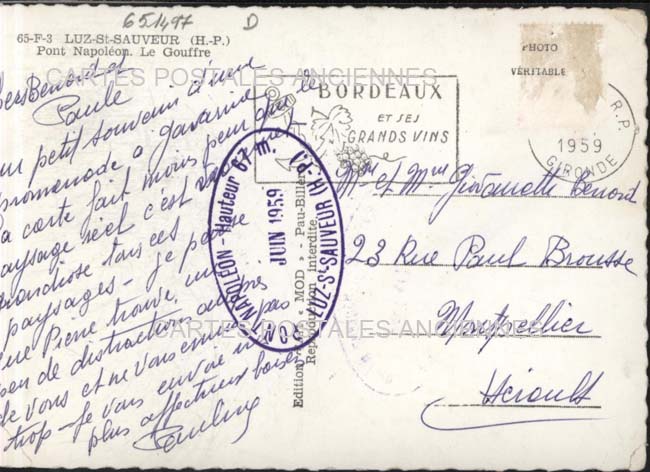 651497 D
65-F-3 LUZ-St-SAUVEUR (H.-P.)
Pont Napoléon. Le Gouffre
CARTES POSTALES ANCIENNES
chers Benoit et
Paule
un petit souvenir d'une
promenade à gavarnie
la carte fait moins peur que le
paysage réel c'est
grandiose tous ces
paysages - je pense
que Pierre trouve un
peu de distractions auprès
de vous et ne vous ennuie pas
trop - Je vous envoie mes
plus affectueux baisers
Pauline
PONT NAPOLÉON - Hauteur 67 m.
JUIN 1959
LUZ-St-SAUVEUR (H.-P.)
Edition « MOD » - Pau-Billère
Reproduction Interdite.
BORDEAUX
ET SES
GRANDS VINS
PHOTO
VÉRITABLE
R.P.
1959
GIRONDE
Mr et Mme Benoit
23 Rue Paul Brousse
Montpellier
Hérault
CARTES POSTALES ANCIENNES